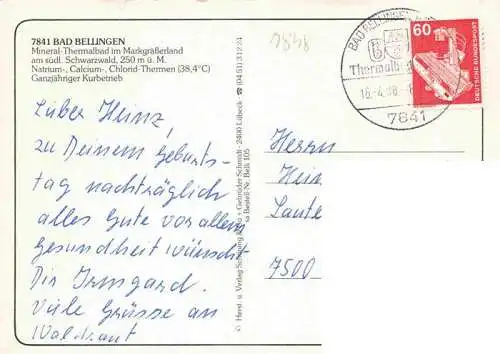 7841 BAD BELLINGEN
Mineral-Thermalbad im Markgräflerland
am südl. Schwarzwald, 250 m ü. M.
Natrium-, Calcium-, Chlorid-Thermen (38,4°C)
Ganzjähriger Kurbetrieb
Lieber Heinz,
zu Deinem Geburts-
tag nachträglich
alles Gute vor allem
Gesundheit wünscht
Dir Irmgard.
Viele Grüsse an
Waldraut
© Herst. u. Verlag Schöning & Co + Gebrüder Schmidt · 2400 Lübeck · ☎ (04 51) 3 12 24
Bestell-Nr. Bell 105
1848
BAD BELLINGEN
Thermalb
7841
60
DEUTSCHE BUNDESPOST
Herrn
Hein
Laute
7500